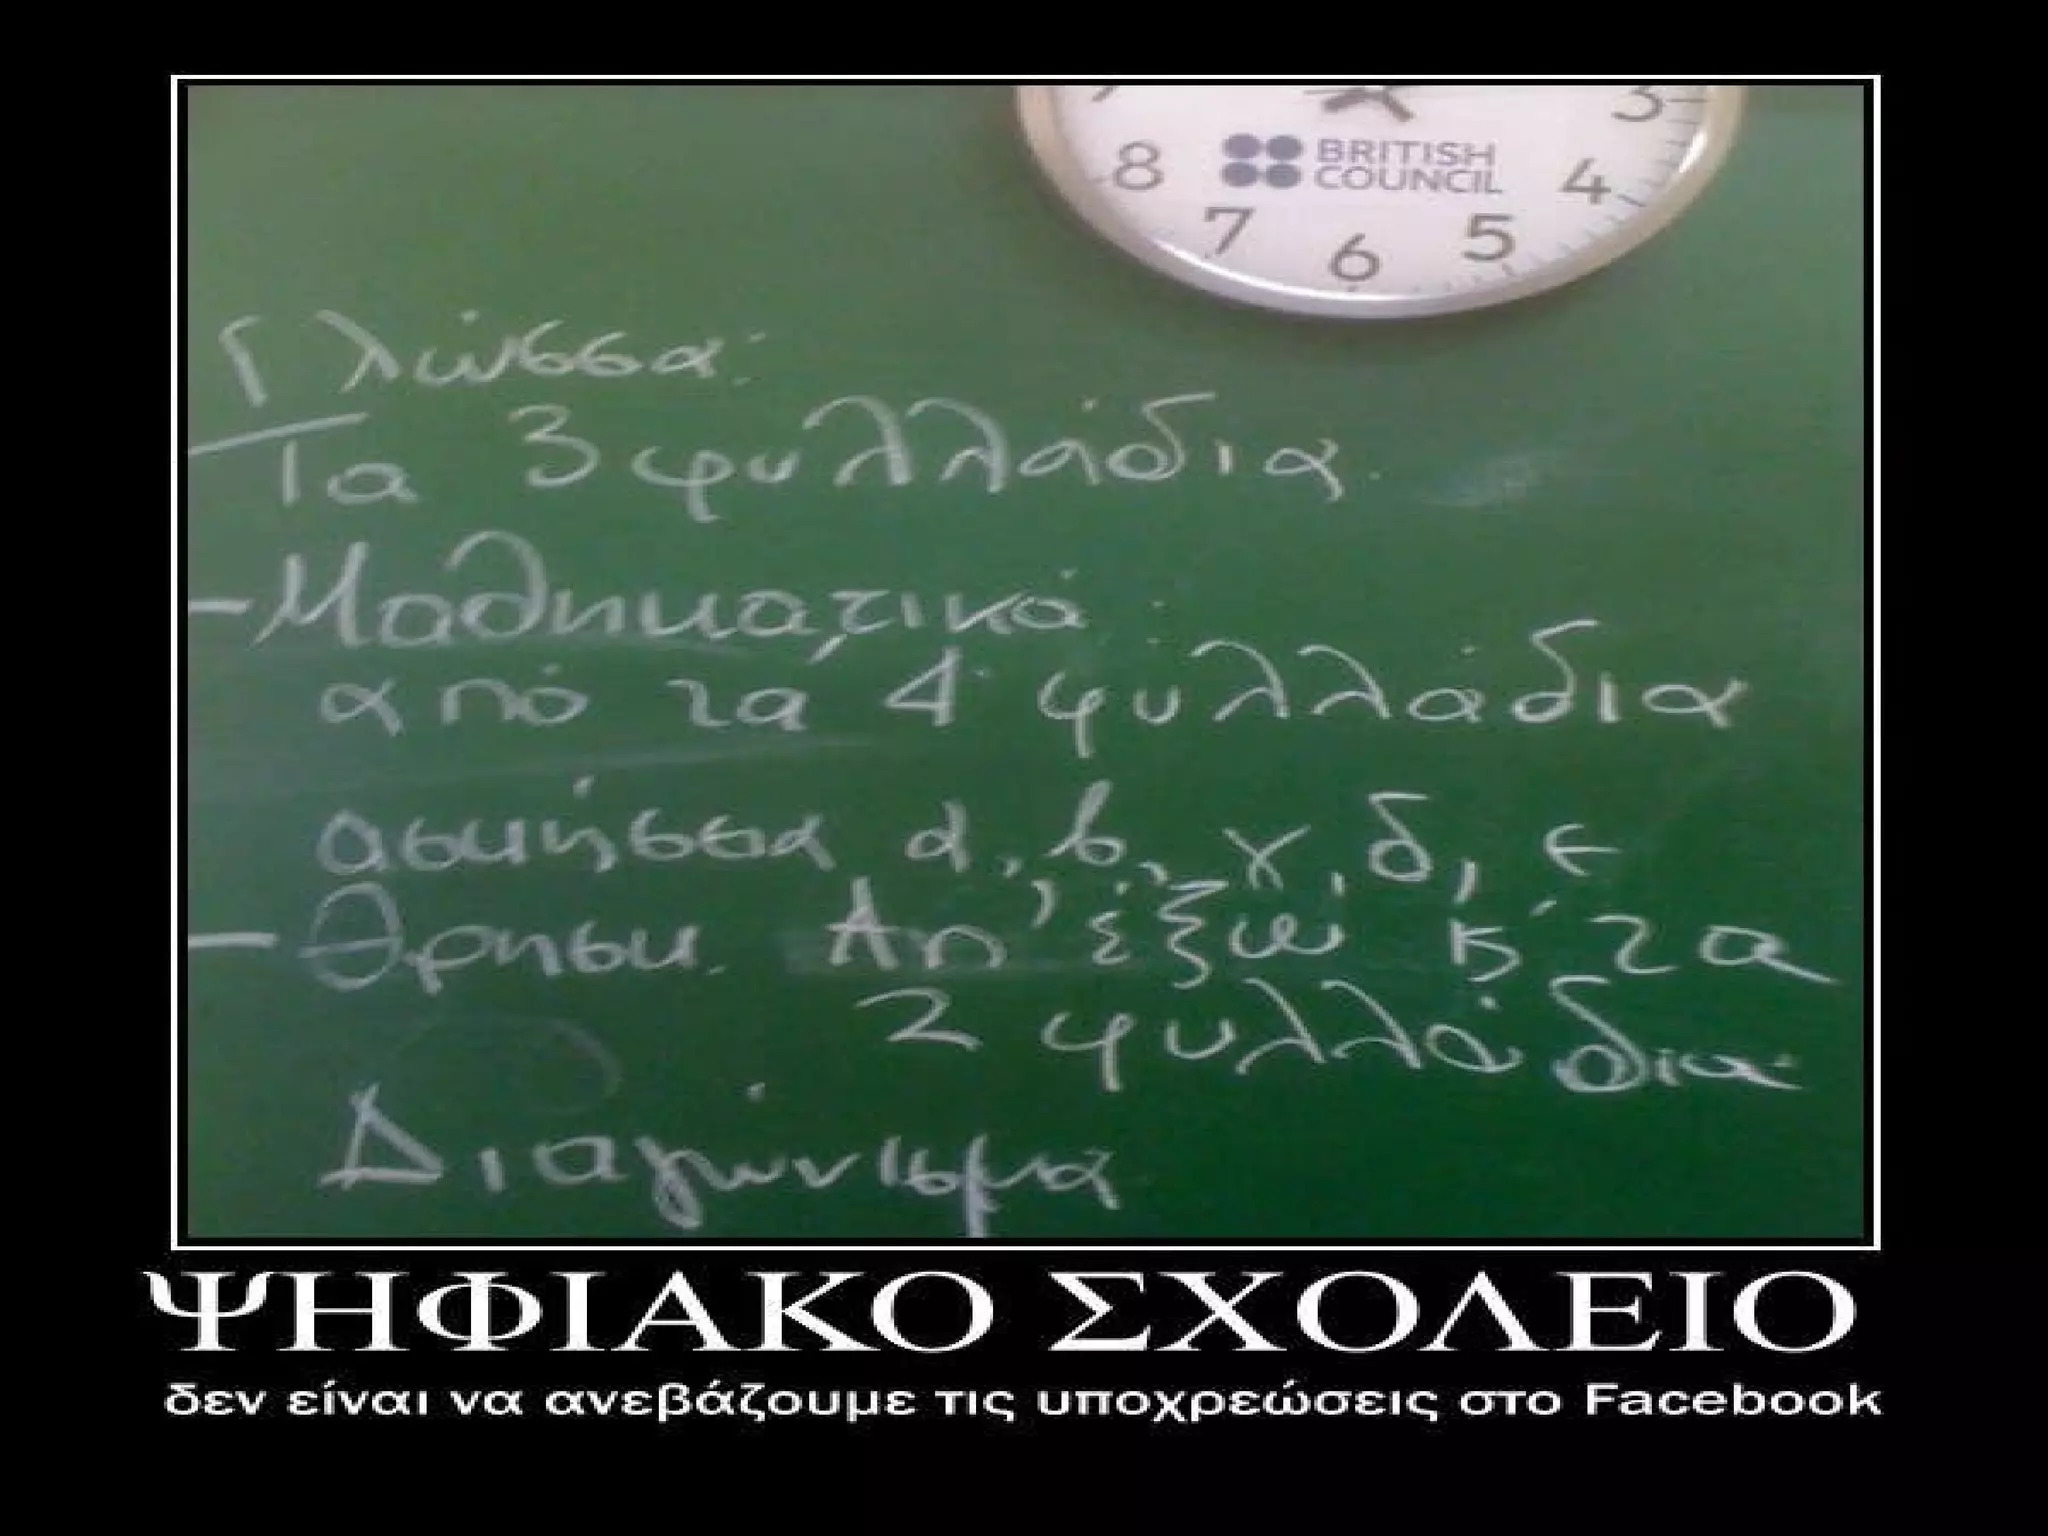 BRITISH
COUNCIL
3
4
5
6
7
8
Γλώσσα:
Τα 3 φυλλάδια.
-Μαθηματικά:
από τα 4 φυλλάδια
ασκήσεια α, β, γ, δ, ε
-Θρησκ. Απ' έξω κ' τα
2 φυλλάδια
Διαγώνισμα
ΨΗΦΙΑΚΟ ΣΧΟΛΕΙΟ
δεν είναι να ανεβάζουμε τις υποχρεώσεις στο Facebook